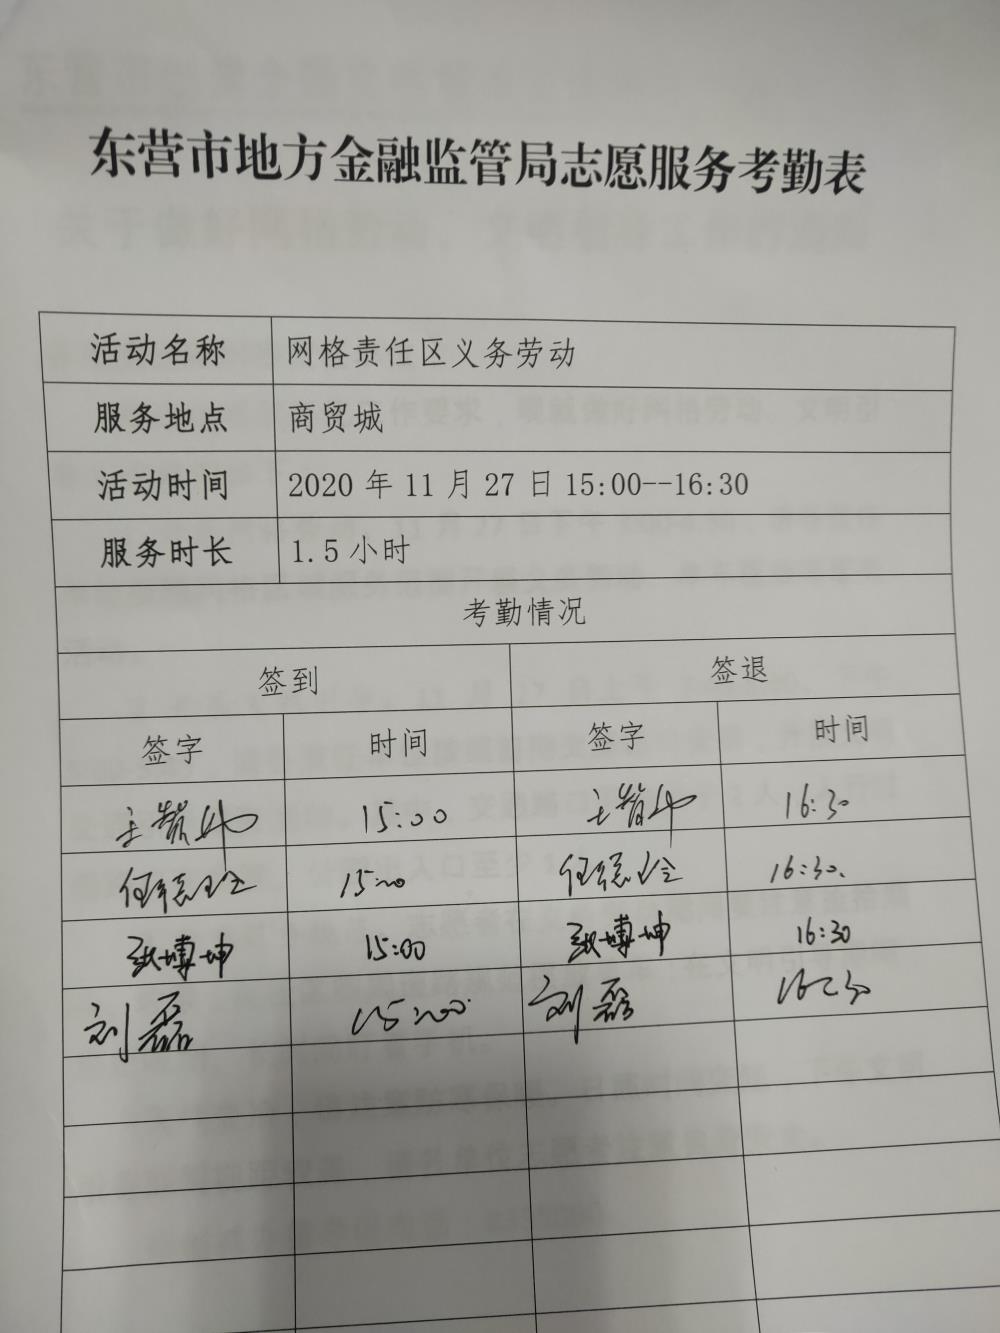 东营市地方金融监管局志愿服务考勤表
活动名称 网格责任区义务劳动
服务地点 商贸城
活动时间 2020 年 11 月 27 日 15:00--16:30
服务时长 1.5 小时
考勤情况
签到 签退
签字 时间 签字 时间
15:00 16:30
任德玲 15:00 任德玲 16:30.
张博坤 15:00 张博坤 16:30
刘磊 15:00 刘磊 16:30